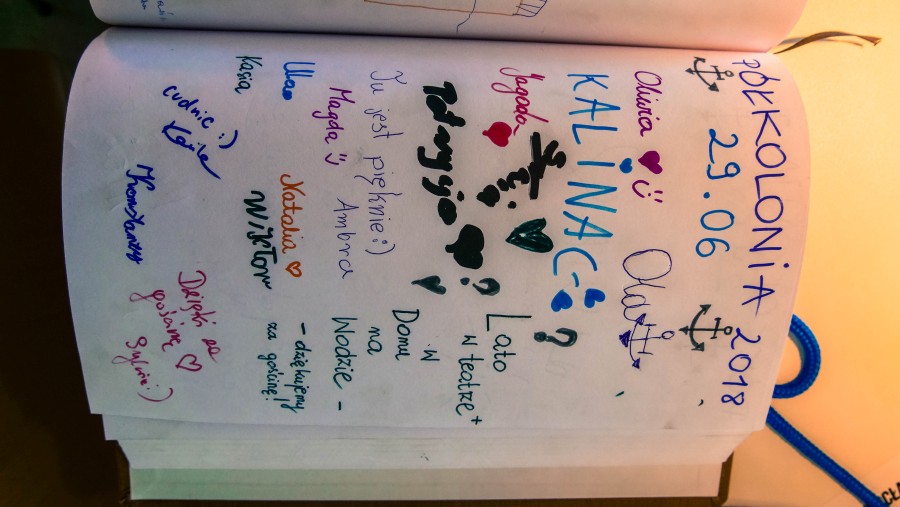 PÓŁKOLONIA 2018
29.06
Oliwia
Ola
KALINA
Jagoda
Patrycja
Lato
w teatrze +
w
Domu
na
Wodzie -
- dziękujemy
za gościnę!
Tu jest pięknie :)
Ambra
Magda
Natalia
Wiktor
Ula
Kasia
cudnie :)
Dzięki za
gościnę
Sylwia :)